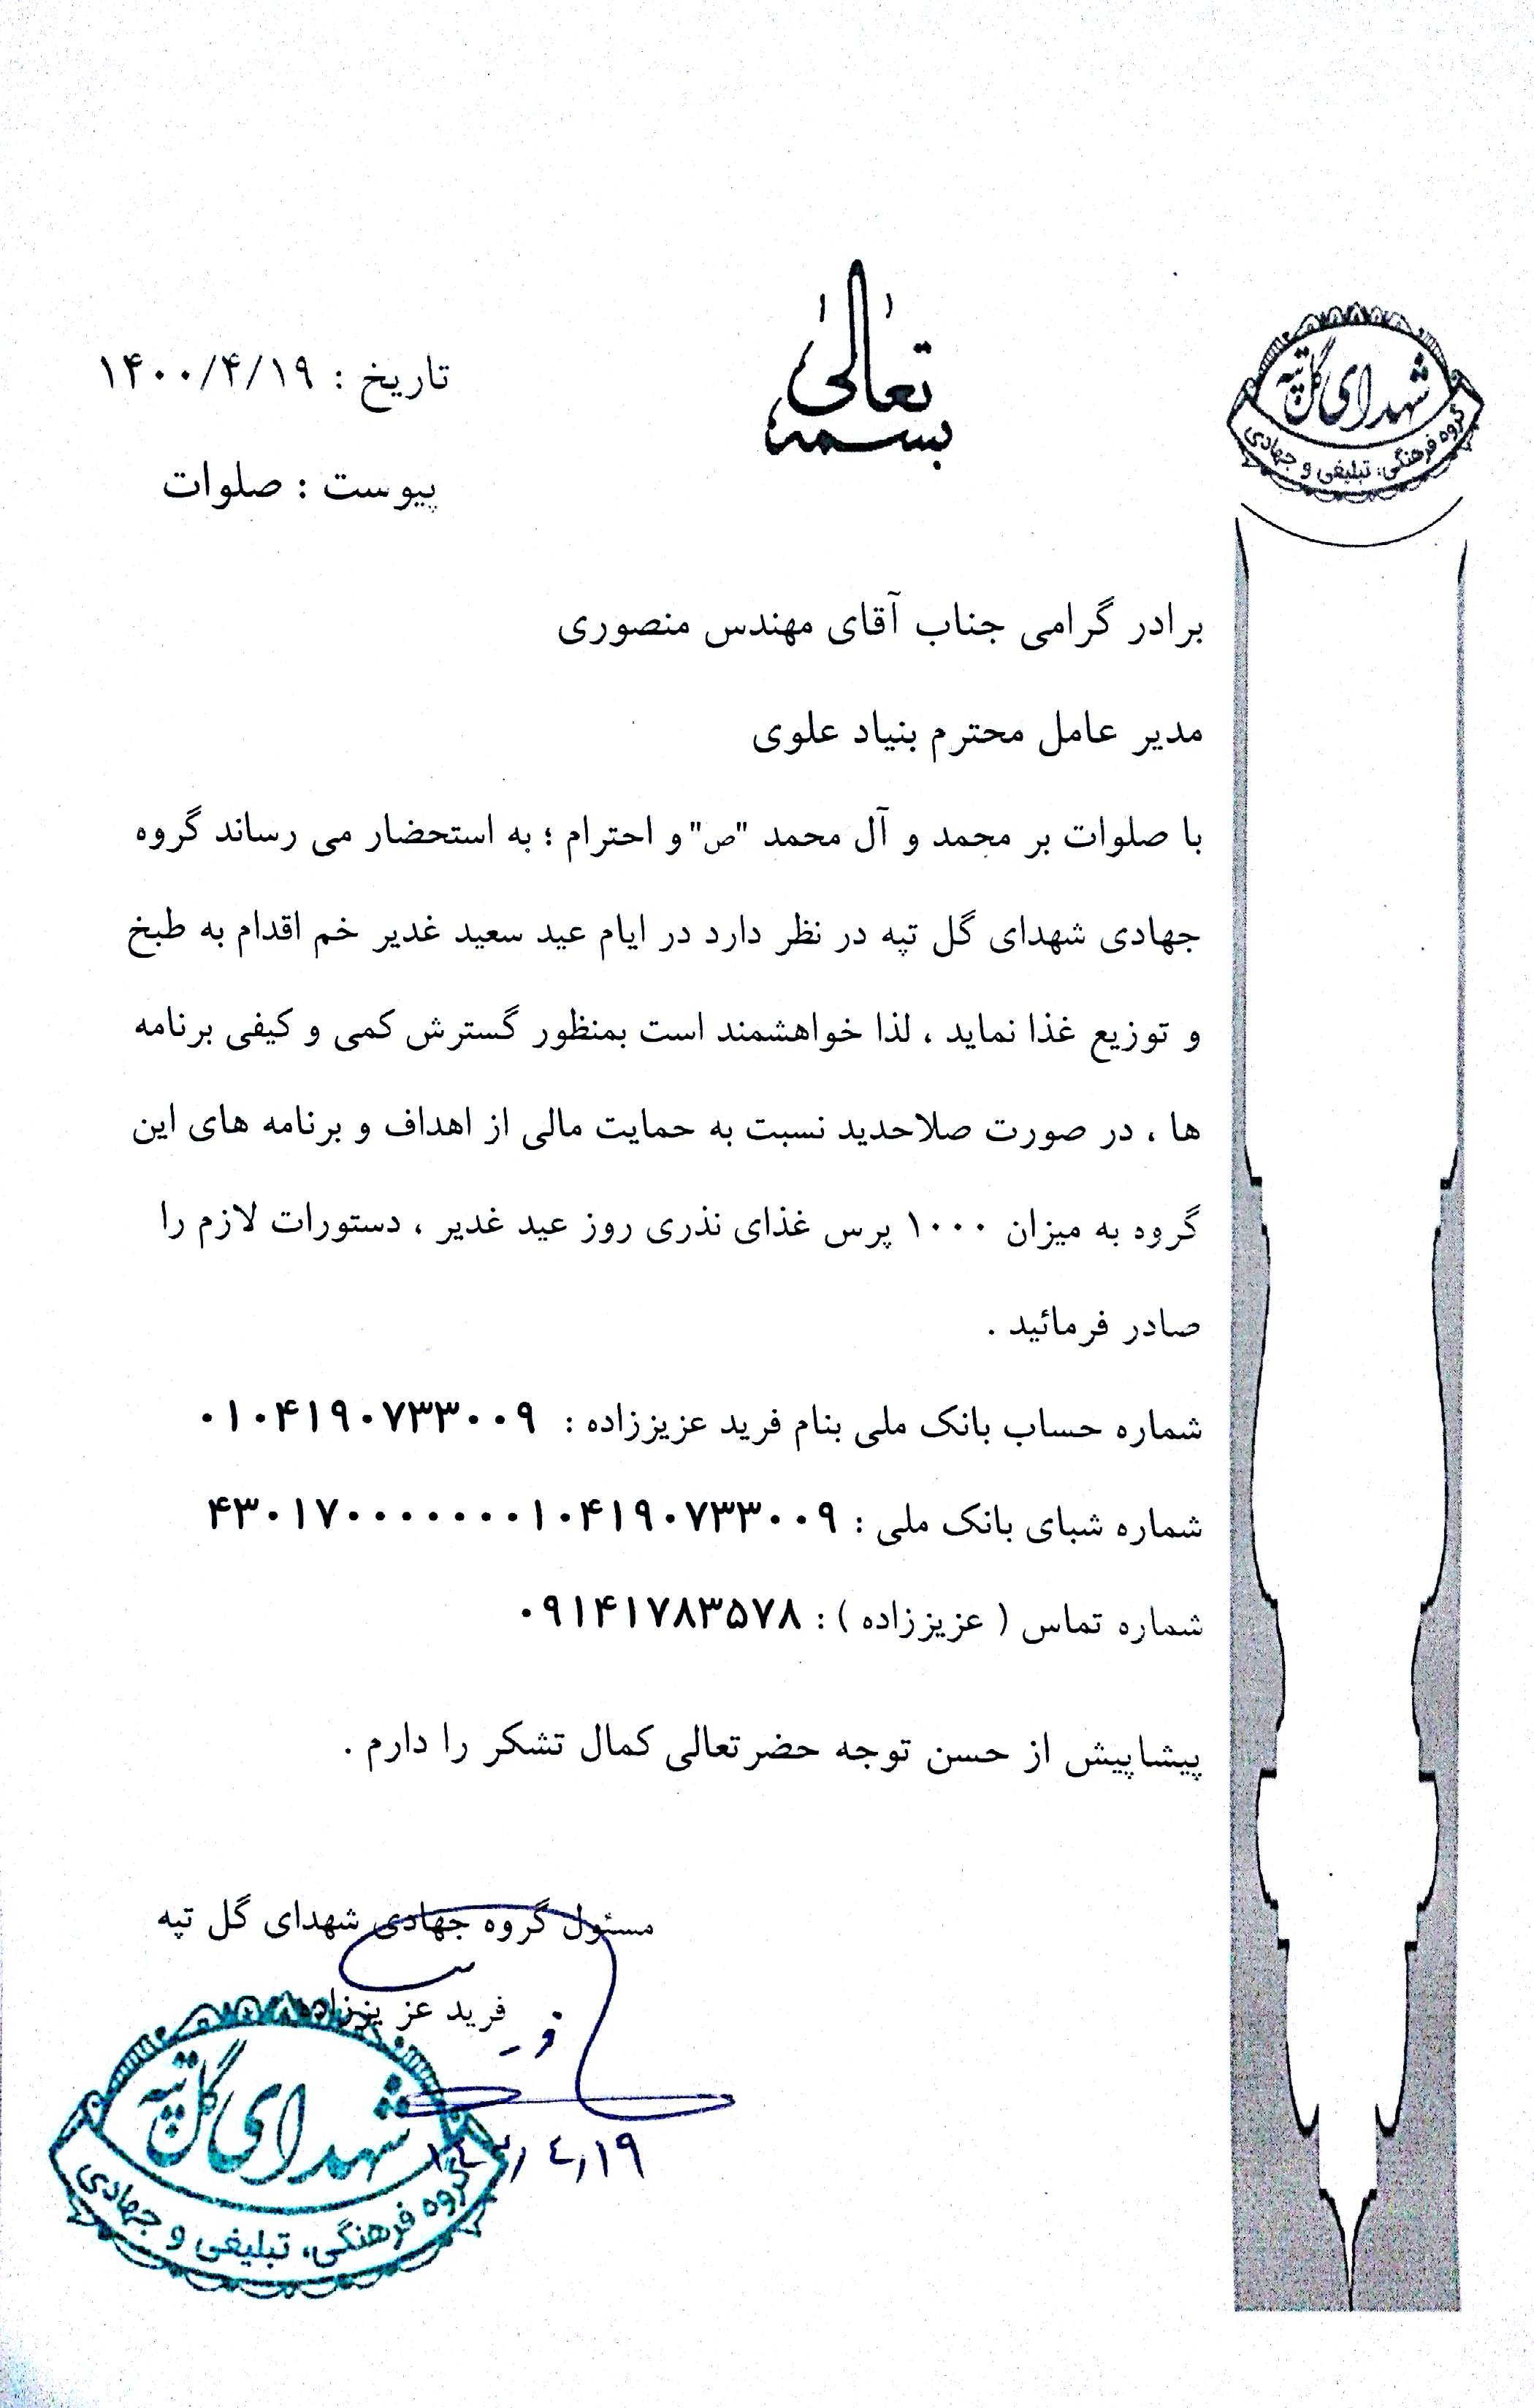 بسمه تعالی
شهدای گل تپه
گروه فرهنگی، تبلیغی و جهادی
تاریخ : ۱۴۰۰/۴/۱۹
پیوست : صلوات
برادر گرامی جناب آقای مهندس منصوری
مدیر عامل محترم بنیاد علوی
با صلوات بر محمد و آل محمد "ص" و احترام ؛ به استحضار می رساند گروه
جهادی شهدای گل تپه در نظر دارد در ایام عید سعید غدیر خم اقدام به طبخ
و توزیع غذا نماید ، لذا خواهشمند است بمنظور گسترش کمی و کیفی برنامه
ها ، در صورت صلاحدید نسبت به حمایت مالی از اهداف و برنامه های این
گروه به میزان ۱۰۰۰ پرس غذای نذری روز عید غدیر ، دستورات لازم را
صادر فرمائید .
شماره حساب بانک ملی بنام فرید عزیززاده : ۰۱۰۴۱۹۰۷۳۳۰۰۹
شماره شبای بانک ملی : ۴۳۰۱۷۰۰۰۰۰۰۰۱۰۴۱۹۰۷۳۳۰۰۹
شماره تماس ( عزیززاده ) : ۰۹۱۴۱۷۸۳۵۷۸
پیشاپیش از حسن توجه حضرتعالی کمال تشکر را دارم .
مسئول گروه جهادی شهدای گل تپه
فرید عزیززاده
شهدای گل تپه
گروه فرهنگی، تبلیغی و جهادی